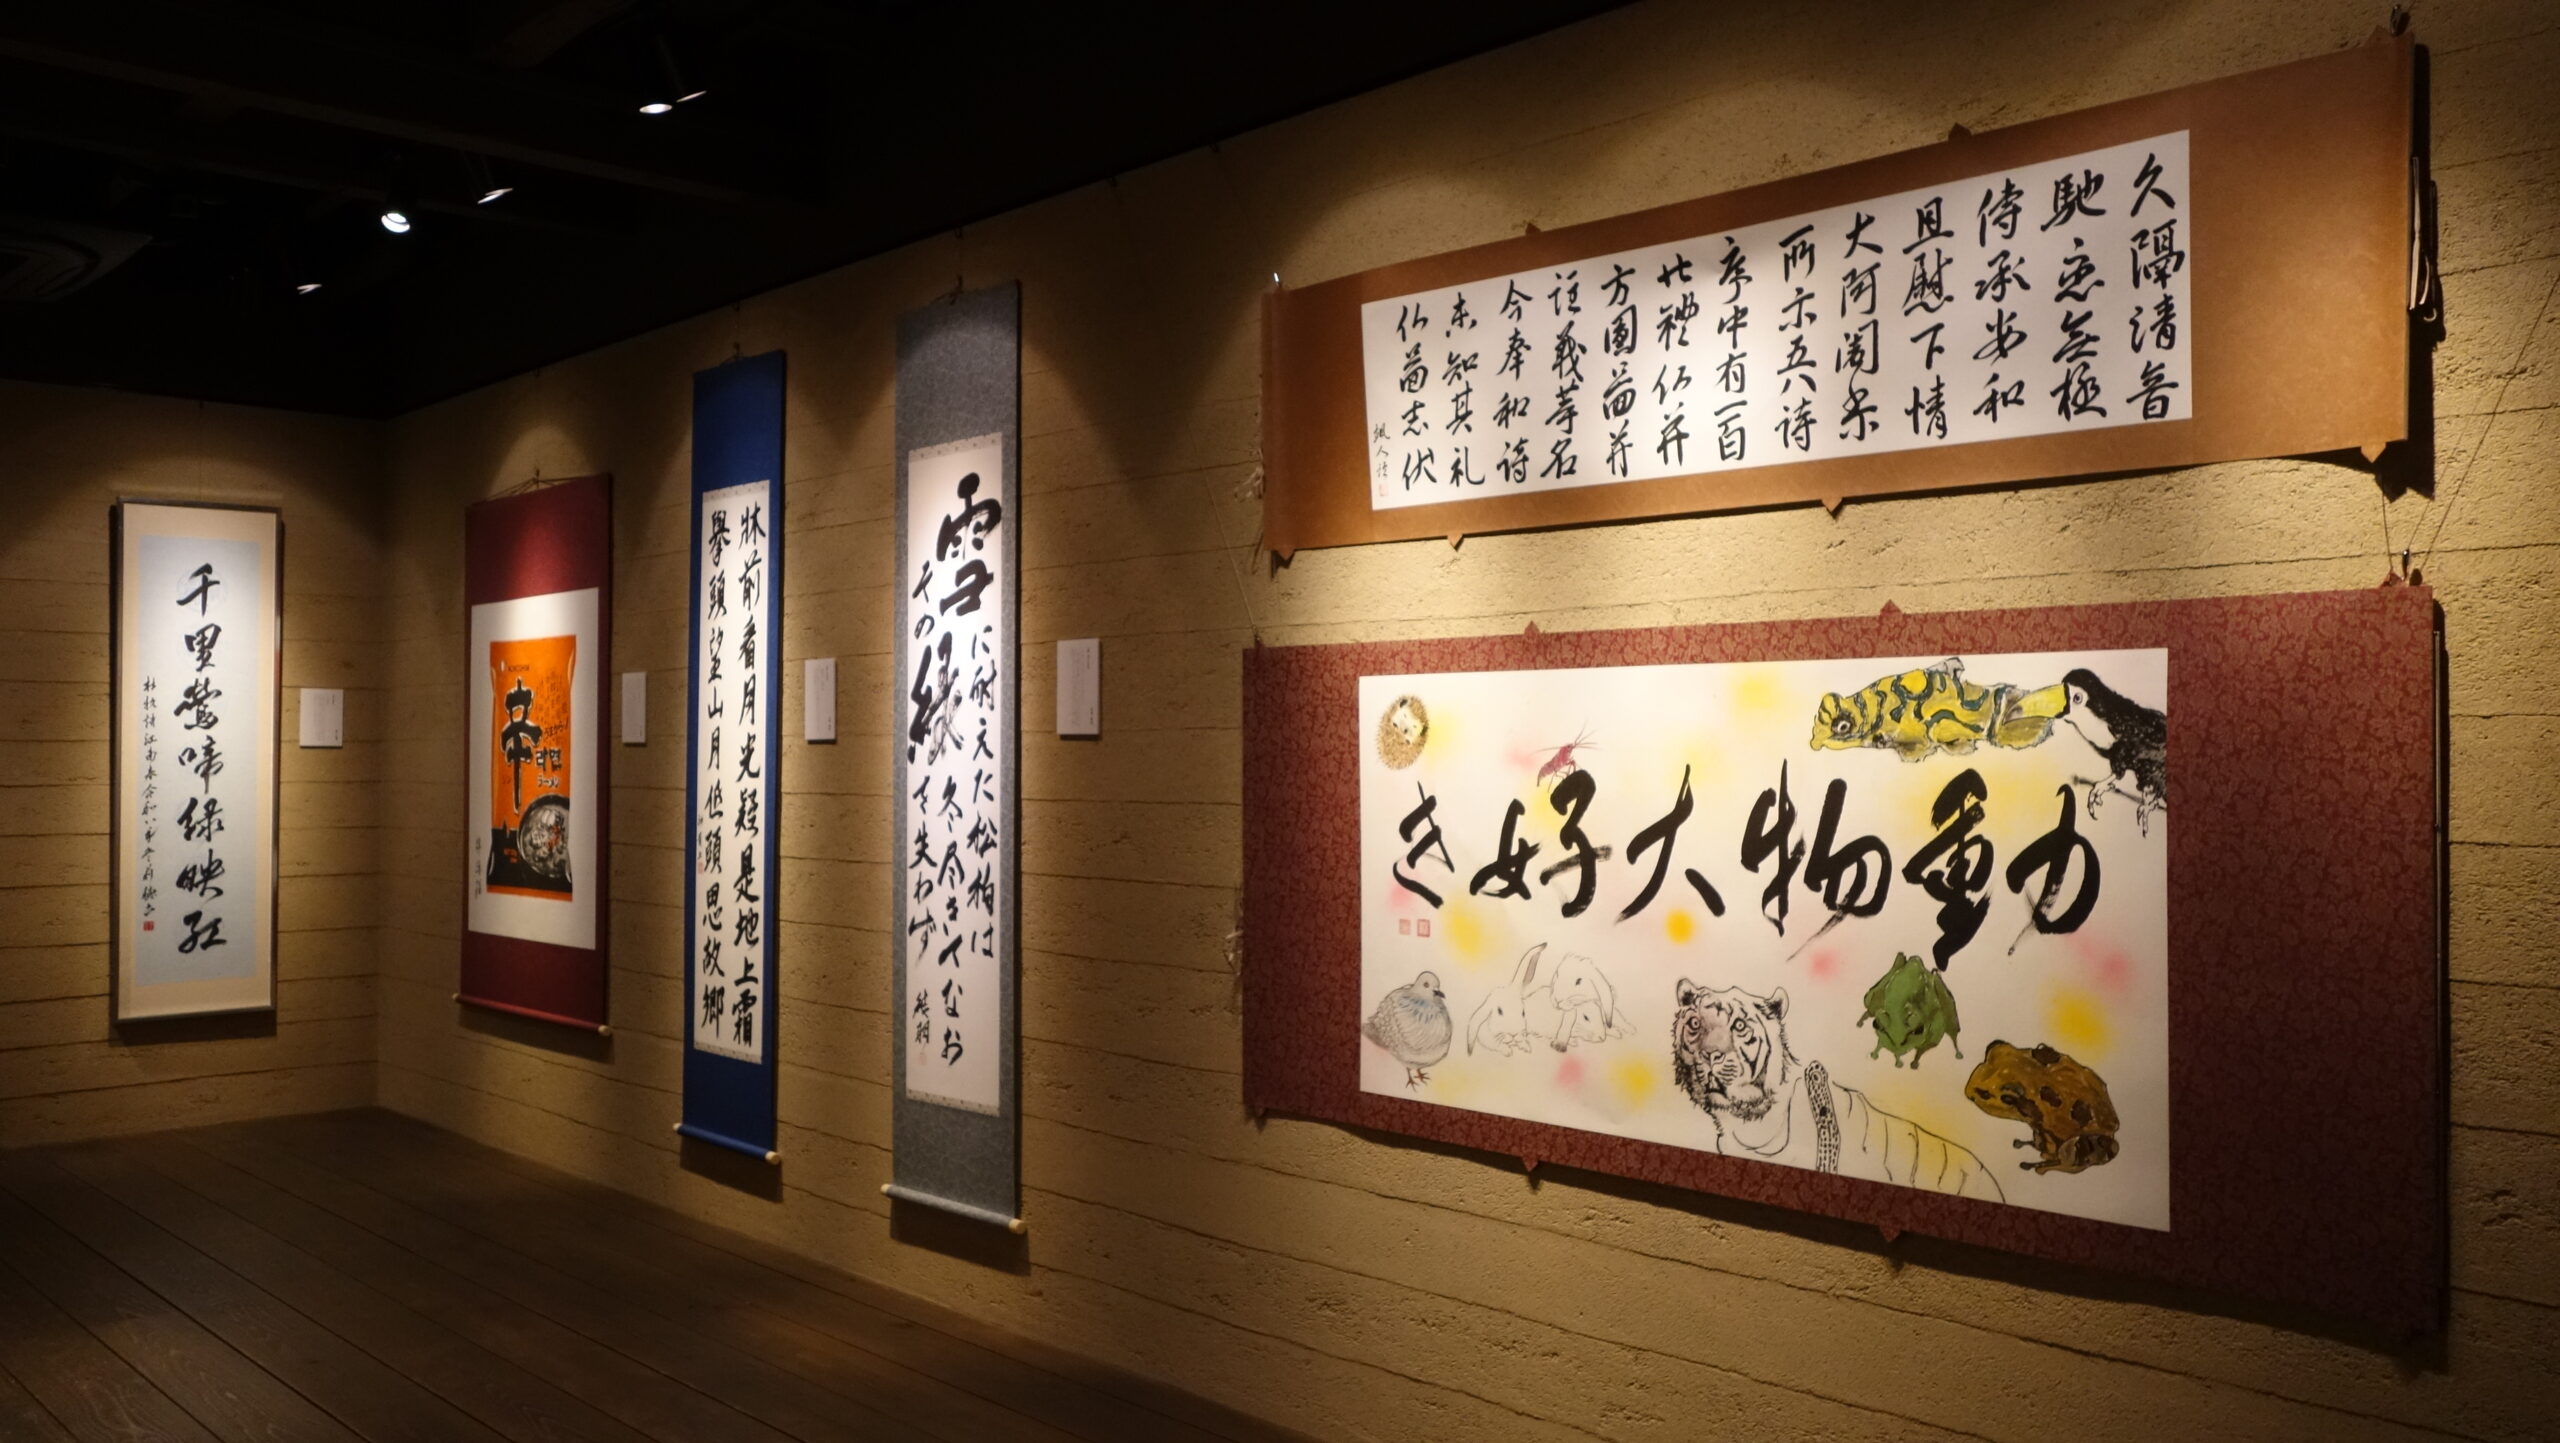 千里鶯啼緑映紅
杜牧詩江南春令和八年
辛
라면
ラーメン
牀前看月光疑是地上霜
擧頭望山月低頭思故郷
雪に耐えた松柏は
冬尽きてなお
その緑を失わず
久隔清音
馳恋無極
傳承安和
且慰下情
大阿闍梨
所示五八詩
序中有一百
廿禮仏并
方圓圖并
註義等名
今奉和詩
未知其礼
仏圖志伏
動物大好き